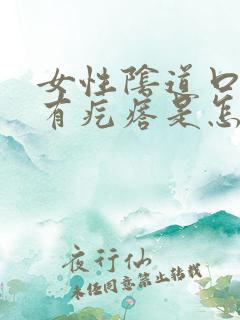 女性陰道口
有疙瘩是怎
夜行仙
未经同意禁止转载